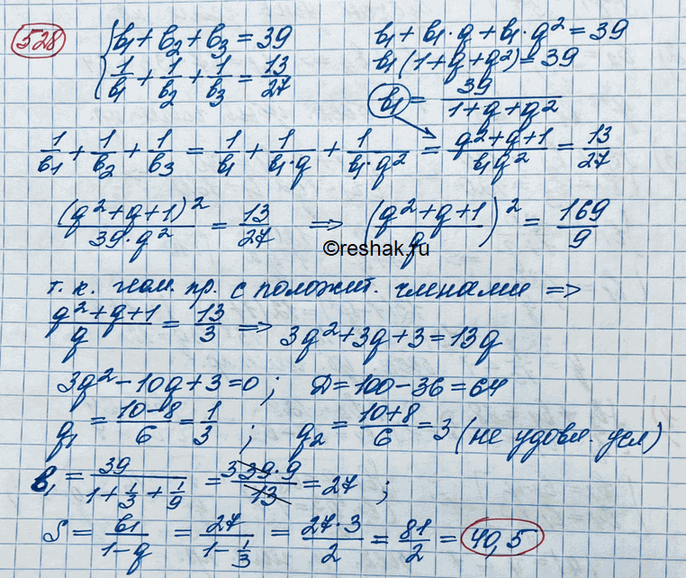 528
{ b₁ + b₂ + b₃ = 39
1/b₁ + 1/b₂ + 1/b₃ = 13/27
b₁ + b₁·q + b₁·q² = 39
b₁(1+q+q²) = 39
b₁ = 39/(1+q+q²)
1/b₁ + 1/b₂ + 1/b₃ = 1/b₁ + 1/(b₁·q) + 1/(b₁·q²) = (q²+q+1)/(b₁q²) = 13/27
(q²+q+1)²/(39·q²) = 13/27 ⇒ ((q²+q+1)/q)² = 169/9
©reshak.ru
т. к. геом. пр. с положит. членами ⇒
(q²+q+1)/q = 13/3 ⇒ 3q²+3q+3 = 13q
3q²-10q+3=0; Д=100-36=64
q₁ = (10-8)/6 = 1/3; q₂ = (10+8)/6 = 3 (не удовл. усл)
b₁ = 39/(1+1/3+1/9) = 3 39·9/13 = 27;
S = b₁/(1-q) = 27/(1-1/3) = 27·3/2 = 81/2 = 40,5